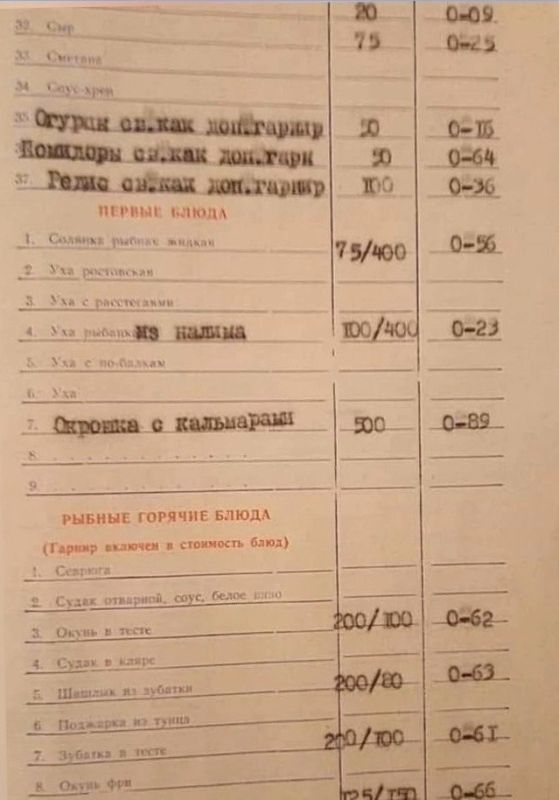 20 0-09
32. Сыр 75 0-25
33. Сметана
34. Соус-хрен
35 Огурцы св.как доп.гарнир 50 0-16
Помидоры св.как доп.гарн 50 0-64
37. Редис св.как доп.гарнир 100 0-36
ПЕРВЫЕ БЛЮДА
1. Солянка рыбная жидкая 75/400 0-56
2. Уха ростовская
3. Уха с расстегаями
4. Уха рыбацкая из налима 100/400 0-23
5. Уха с
6. Уха
7. Окрошка с кальмарами 500 0-89
8. . . . . . . . . . . .
9. . . . . . . . . . . .
РЫБНЫЕ ГОРЯЧИЕ БЛЮДА
(Гарнир включен в стоимость блюд)
1. Севрюга
2. Судак отварной, соус, белое вино
3. Окунь в тесте 200/100 0-62
4. Судак в кляре
5. Шашлык из зубатки 200/80 0-63
6. Поджарка из тунца
7. Зубатка в тесте 200/100 0-61
8. Окунь фри 125/150 0-66